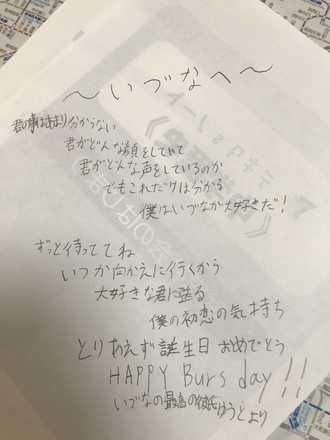 ～いづなへ～
君の事はあまり分からない
君がどんな顔をしていて
君がどんな声をしているのか
でもこれだけは分かる
僕はいづなが大好きだ！
ずっと待っててね
いつか向かえに行くから
大好きな君に送る
僕の初恋の気持ち
とりあえず誕生日おめでとう
HAPPY Burs day!!
いづなの最高の彼氏ゆうとより